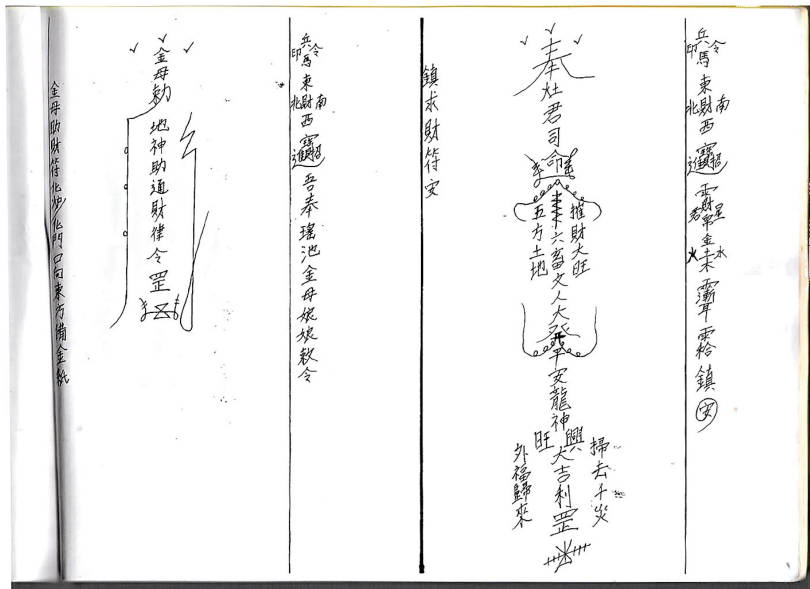 兵馬東財西
印令
北南
招財進寶
鎮安
奉灶君司命
六畜文人大發平安龍神
催財大旺
五方土地
興旺
大吉利罡
掃去千災
外福歸來
鎮求財符安
兵馬東財西
印令
北南
招財進寶
吾奉瑤池金母娘娘敕令
金母勅
地神助通財律令罡
金母助財符化爐化門口向東方備金紙